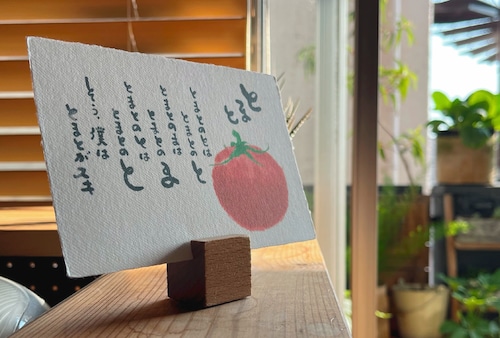 とまと
とまとのとは
とまとのと
とまとのまは
とまとのま
とまとのとは
とまとのと
そう、僕は
とまとがスキ